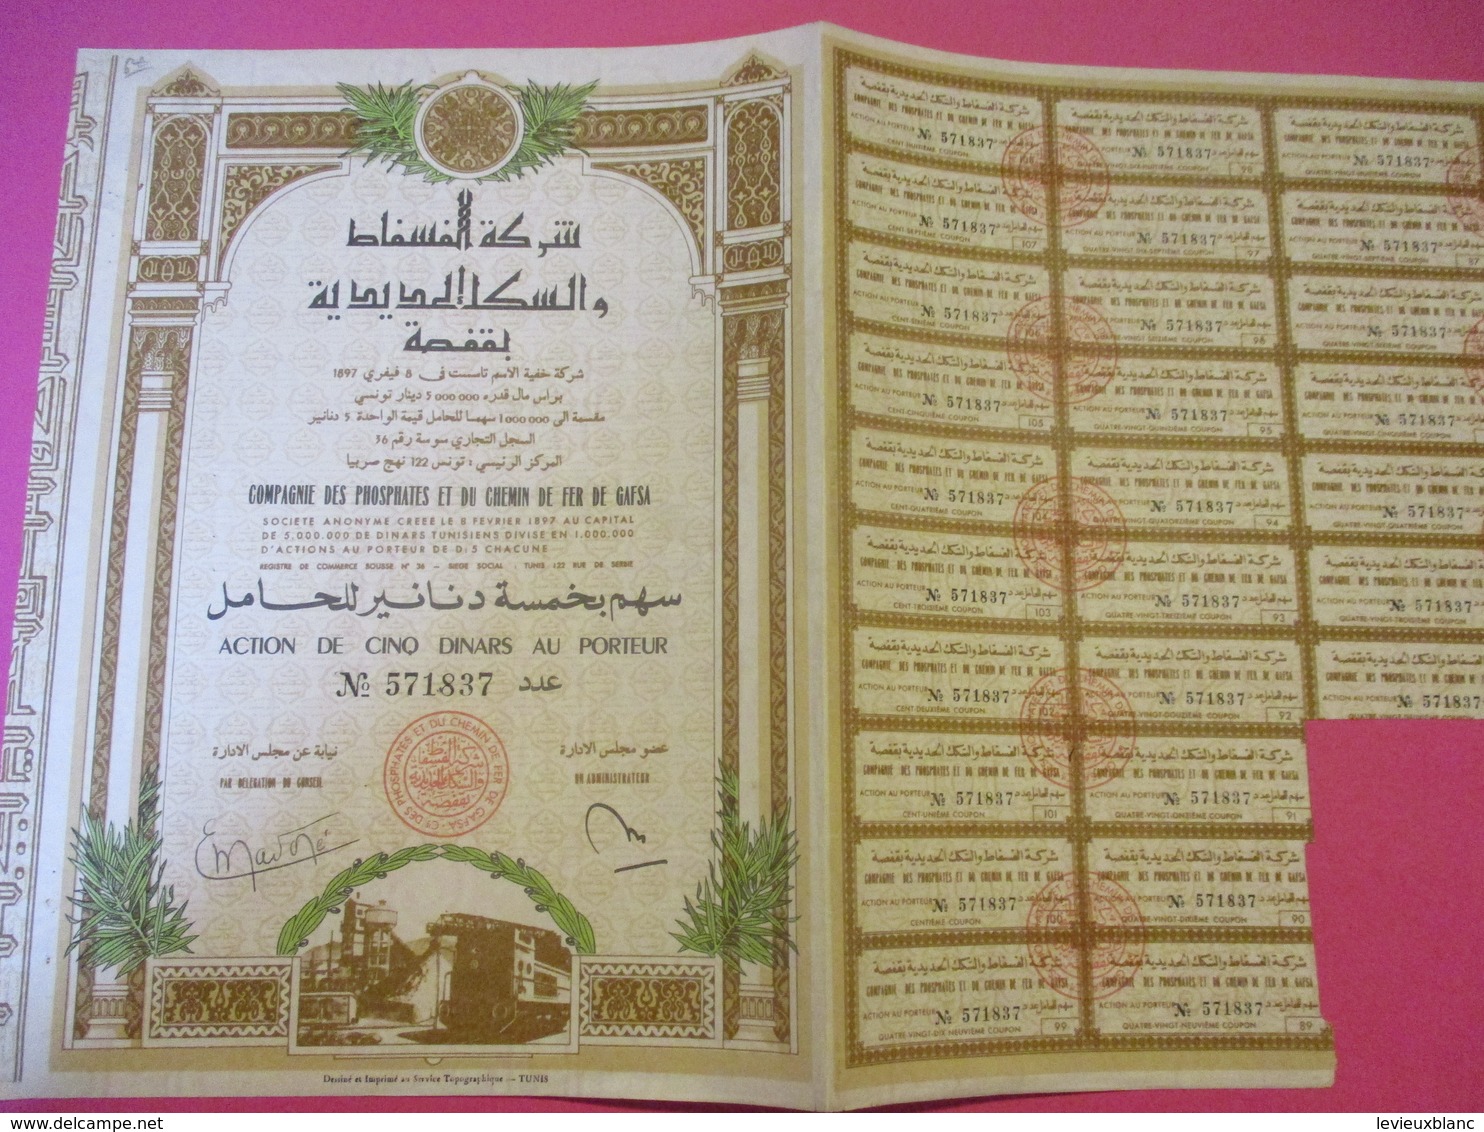 شركة الفسفاط
والسكك الحديدية
بقفصة
شركة خفية الاسم تاسست في 8 فيفري 1897
براس مال قدره 5 000 000 دينار تونسي
مقسمة الى 1 000 000 سهما للحامل قيمة الواحدة 5 دنانير
السجل التجاري سوسة رقم 36
المركز الرئيسي : تونس 122 نهج صربيا
COMPAGNIE DES PHOSPHATES ET DU CHEMIN DE FER DE GAFSA
SOCIETE ANONYME CREEE LE 8 FEVRIER 1897 AU CAPITAL
DE 5.000.000 DE DINARS TUNISIENS DIVISE EN 1.000.000
D'ACTIONS AU PORTEUR DE D: 5 CHACUNE
REGISTRE DE COMMERCE SOUSSE N° 36 — SIEGE SOCIAL : TUNIS 122 RUE DE SERBIE
سهم بخمسة دنانير للحامل
ACTION DE CINQ DINARS AU PORTEUR
№ 571837 عدد
نيابة عن مجلس الادارة
عضو مجلس الادارة
PAR DELEGATION DU CONSEIL
UN ADMINISTRATEUR
Cie DES PHOSPHATES ET DU CHEMIN DE FER DE GAFSA
Dessiné et Imprimé au Service Topographique — TUNIS
شركة الفسفاط والسكك الحديدية بقفصة
COMPAGNIE DES PHOSPHATES ET DU CHEMIN DE FER DE GAFSA
ACTION AU PORTEUR № 571837 سهم للحامل عدد
CENT-HUITIÈME COUPON
QUATRE-VINGT-DIX-HUITIÈME COUPON 98
QUATRE-VINGT-HUITIÈME COUPON
CENT-SEPTIÈME COUPON 107
QUATRE-VINGT-DIX-SEPTIÈME COUPON 97
QUATRE-VINGT-SEPTIÈME COUPON 87
CENT-SIXIÈME COUPON 106
QUATRE-VINGT-SEIZIÈME COUPON 96
QUATRE-VINGT-SIXIÈME COUPON
CENT-CINQUIÈME COUPON 105
QUATRE-VINGT-QUINZIÈME COUPON 95
QUATRE-VINGT-CINQUIÈME COUPON
CENT-QUATRIÈME COUPON 104
QUATRE-VINGT-QUATORZIÈME COUPON 94
QUATRE-VINGT-QUATRIÈME COUPON
CENT TROISIÈME COUPON 103
QUATRE-VINGT-TREIZIÈME COUPON 93
QUATRE-VINGT-TROISIÈME COUPON
CENT-DEUXIÈME COUPON 102
QUATRE-VINGT-DOUZIÈME COUPON 92
CENT-UNIÈME COUPON 101
QUATRE-VINGT-ONZIÈME COUPON 91
CENTIÈME COUPON 100
QUATRE-VINGT-DIXIÈME COUPON 90
QUATRE-VINGT-DIX NEUVIÈME COUPON 99
QUATRE-VINGT-NEUVIÈME COUPON 89
delcampe.net
levieuxblanc